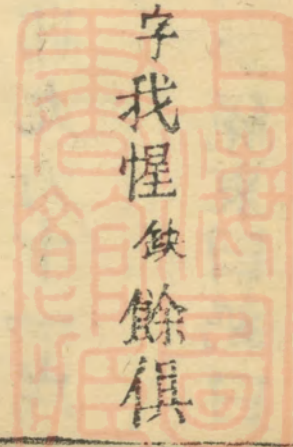 字我惺缺餘俱